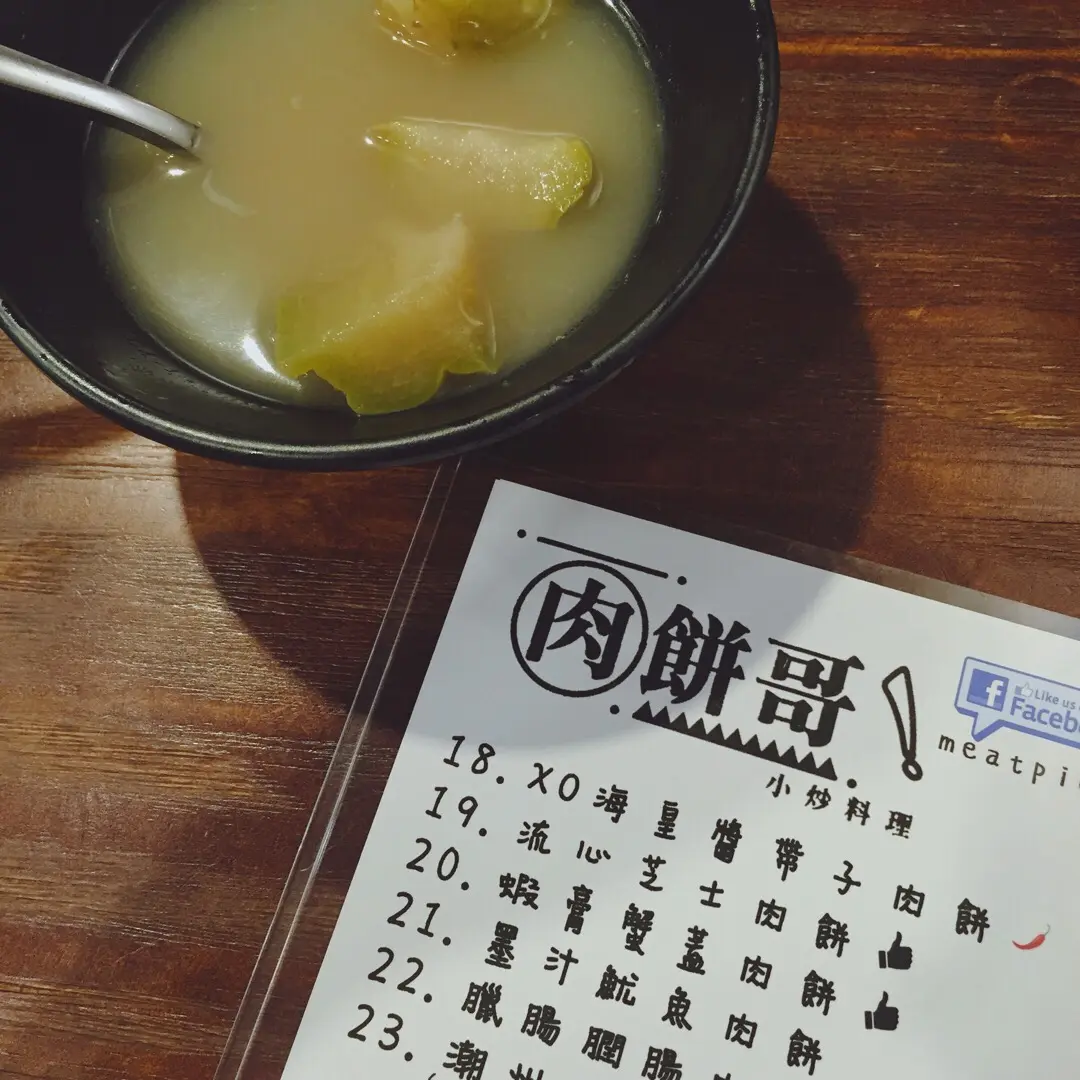 肉餅哥!
小炒料理
f Like us
Faceb
meatpi
18. XO海皇醬帶子肉餅
19. 流心芝士肉餅
20. 蝦膏蟹蓋肉餅
21. 墨汁魷魚肉餅
22. 臘腸膶腸
23. 潮